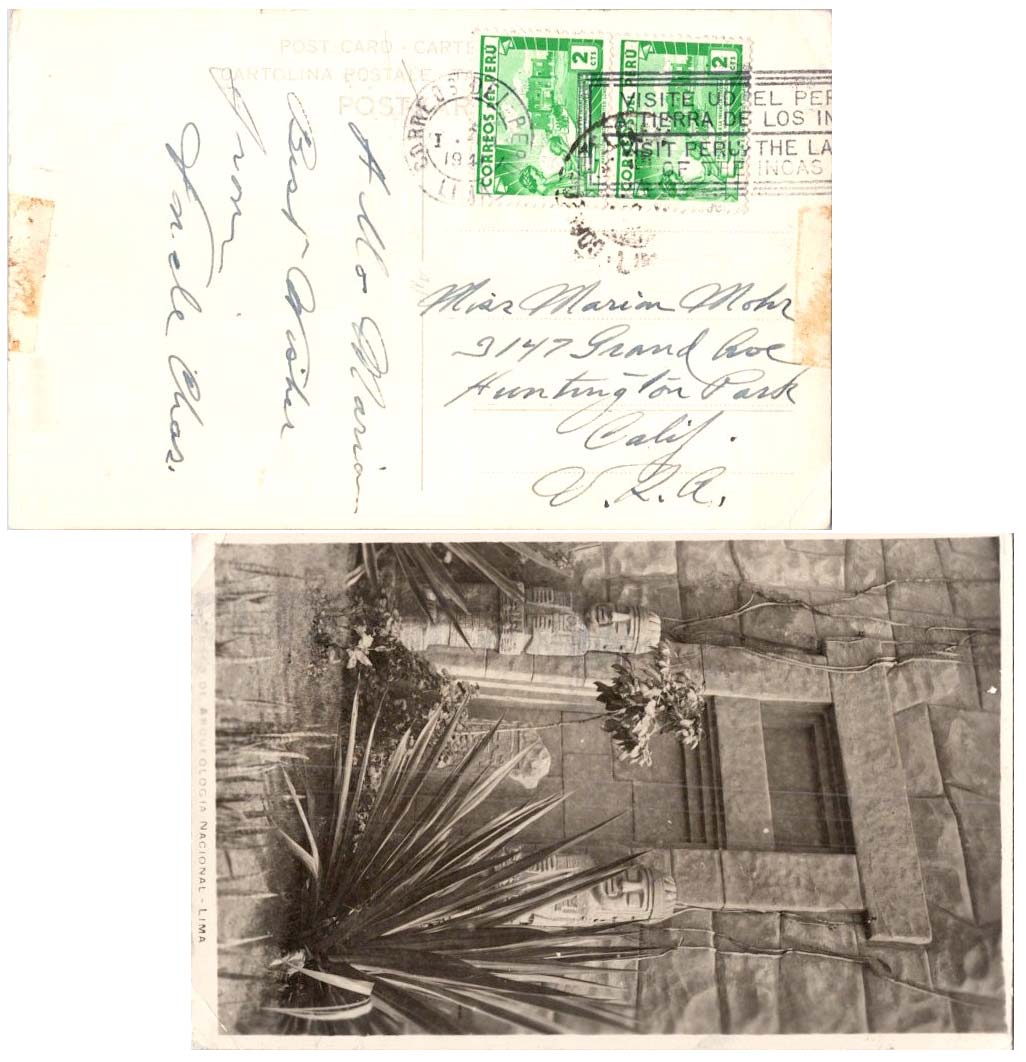 POST CARD - CARTE
CARTOLINA POSTALE
POST
CORREOS DEL PERU
2 CTS
CORREOS DEL PERU
2 CTS
VISITE UD. EL PER
LA TIERRA DE LOS IN
VISIT PERU THE LA
OF THE INCAS
Allo Marian
Best Wishes
from
Uncle Chas.
Miss Marian Mohr
3147 Grand Ave
Huntington Park
Calif.
U. S. A.
DE ARQUEOLOGIA NACIONAL - LIMA